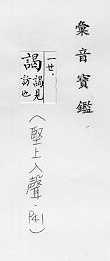 彙音寶鑑
一ㄝ.
謁
謁見
訪也
(堅上入聲. P41)